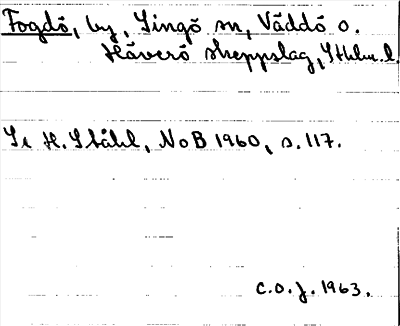 Fogdö, by, Singö sn, Väddö o.
Häverö skeppslag, Sthlm. l.
Se H. Ståhl, NoB 1960, s. 117.
C.O.J. 1963.